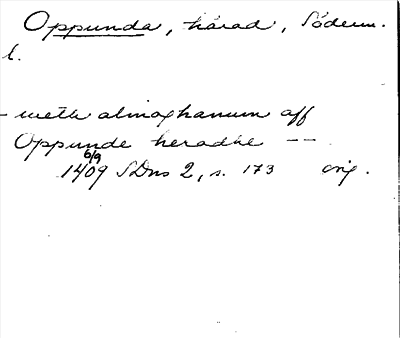 Oppunda, härad, Söderm.
l.
- meth almoghanum aff
Oppunde heradhe --
6/9
1409 SDns 2, s. 173 orig.